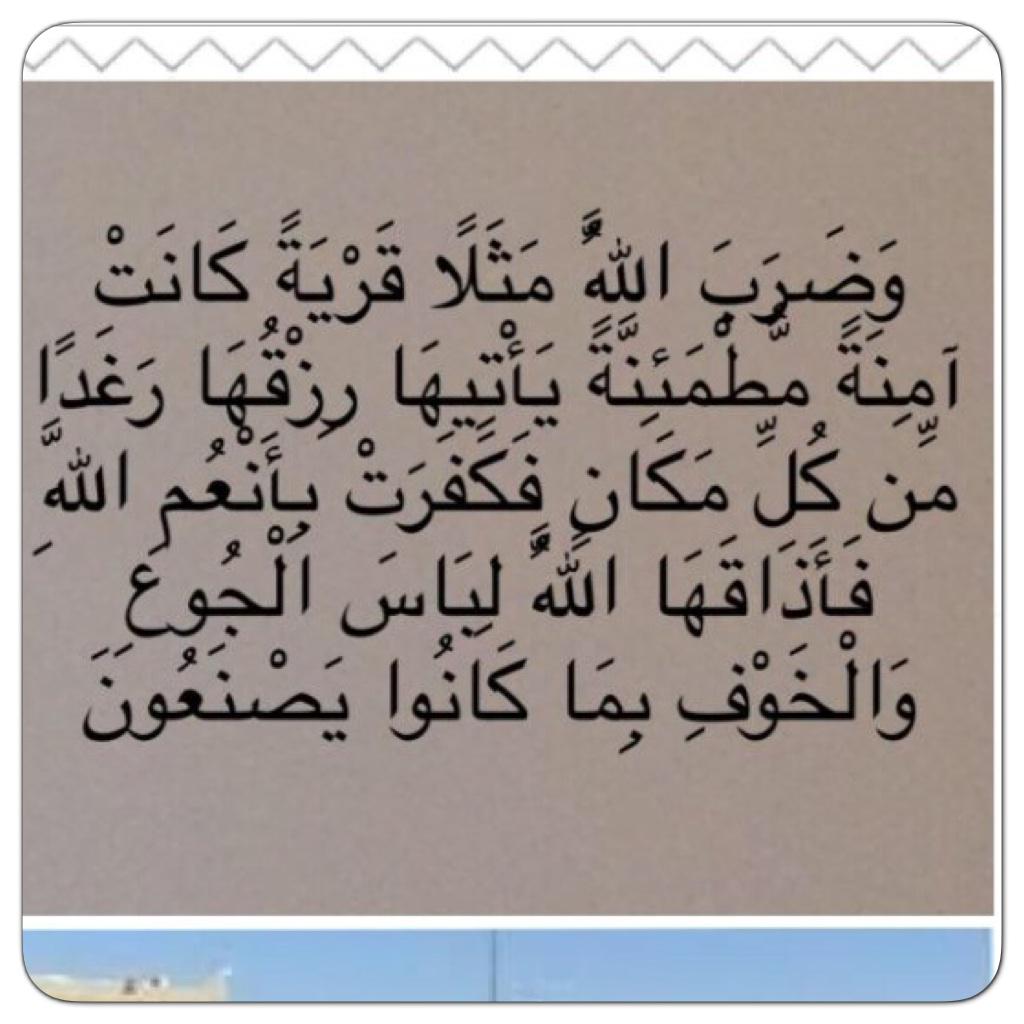 وَضَرَبَ اللَّهُ مَثَلًا قَرْيَةً كَانَتْ
آمِنَةً مُّطْمَئِنَّةً يَأْتِيهَا رِزْقُهَا رَغَدًا
مِّن كُلِّ مَكَانٍ فَكَفَرَتْ بِأَنْعُمِ اللَّهِ
فَأَذَاقَهَا اللَّهُ لِبَاسَ الْجُوعِ
وَالْخَوْفِ بِمَا كَانُوا يَصْنَعُونَ